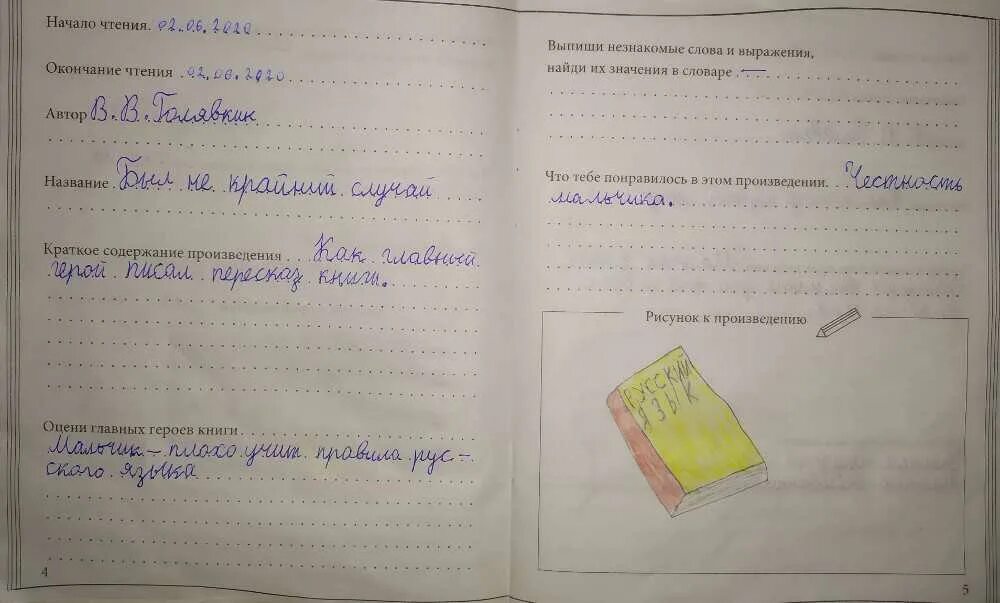 Начало чтения. 02.06.2020
Окончание чтения. 02.06.2020
Автор В. В. Голявкин
Название. Был не крайний случай
Краткое содержание произведения Как главный
герой писал пересказ книги.
Оцени главных героев книги
Мальчик - плохо учит правила рус-
ского языка
4
Выпиши незнакомые слова и выражения,
найди их значения в словаре. —
Что тебе понравилось в этом произведении. Честность
мальчика.
Рисунок к произведению
РУССКИЙ
ЯЗЫК
5